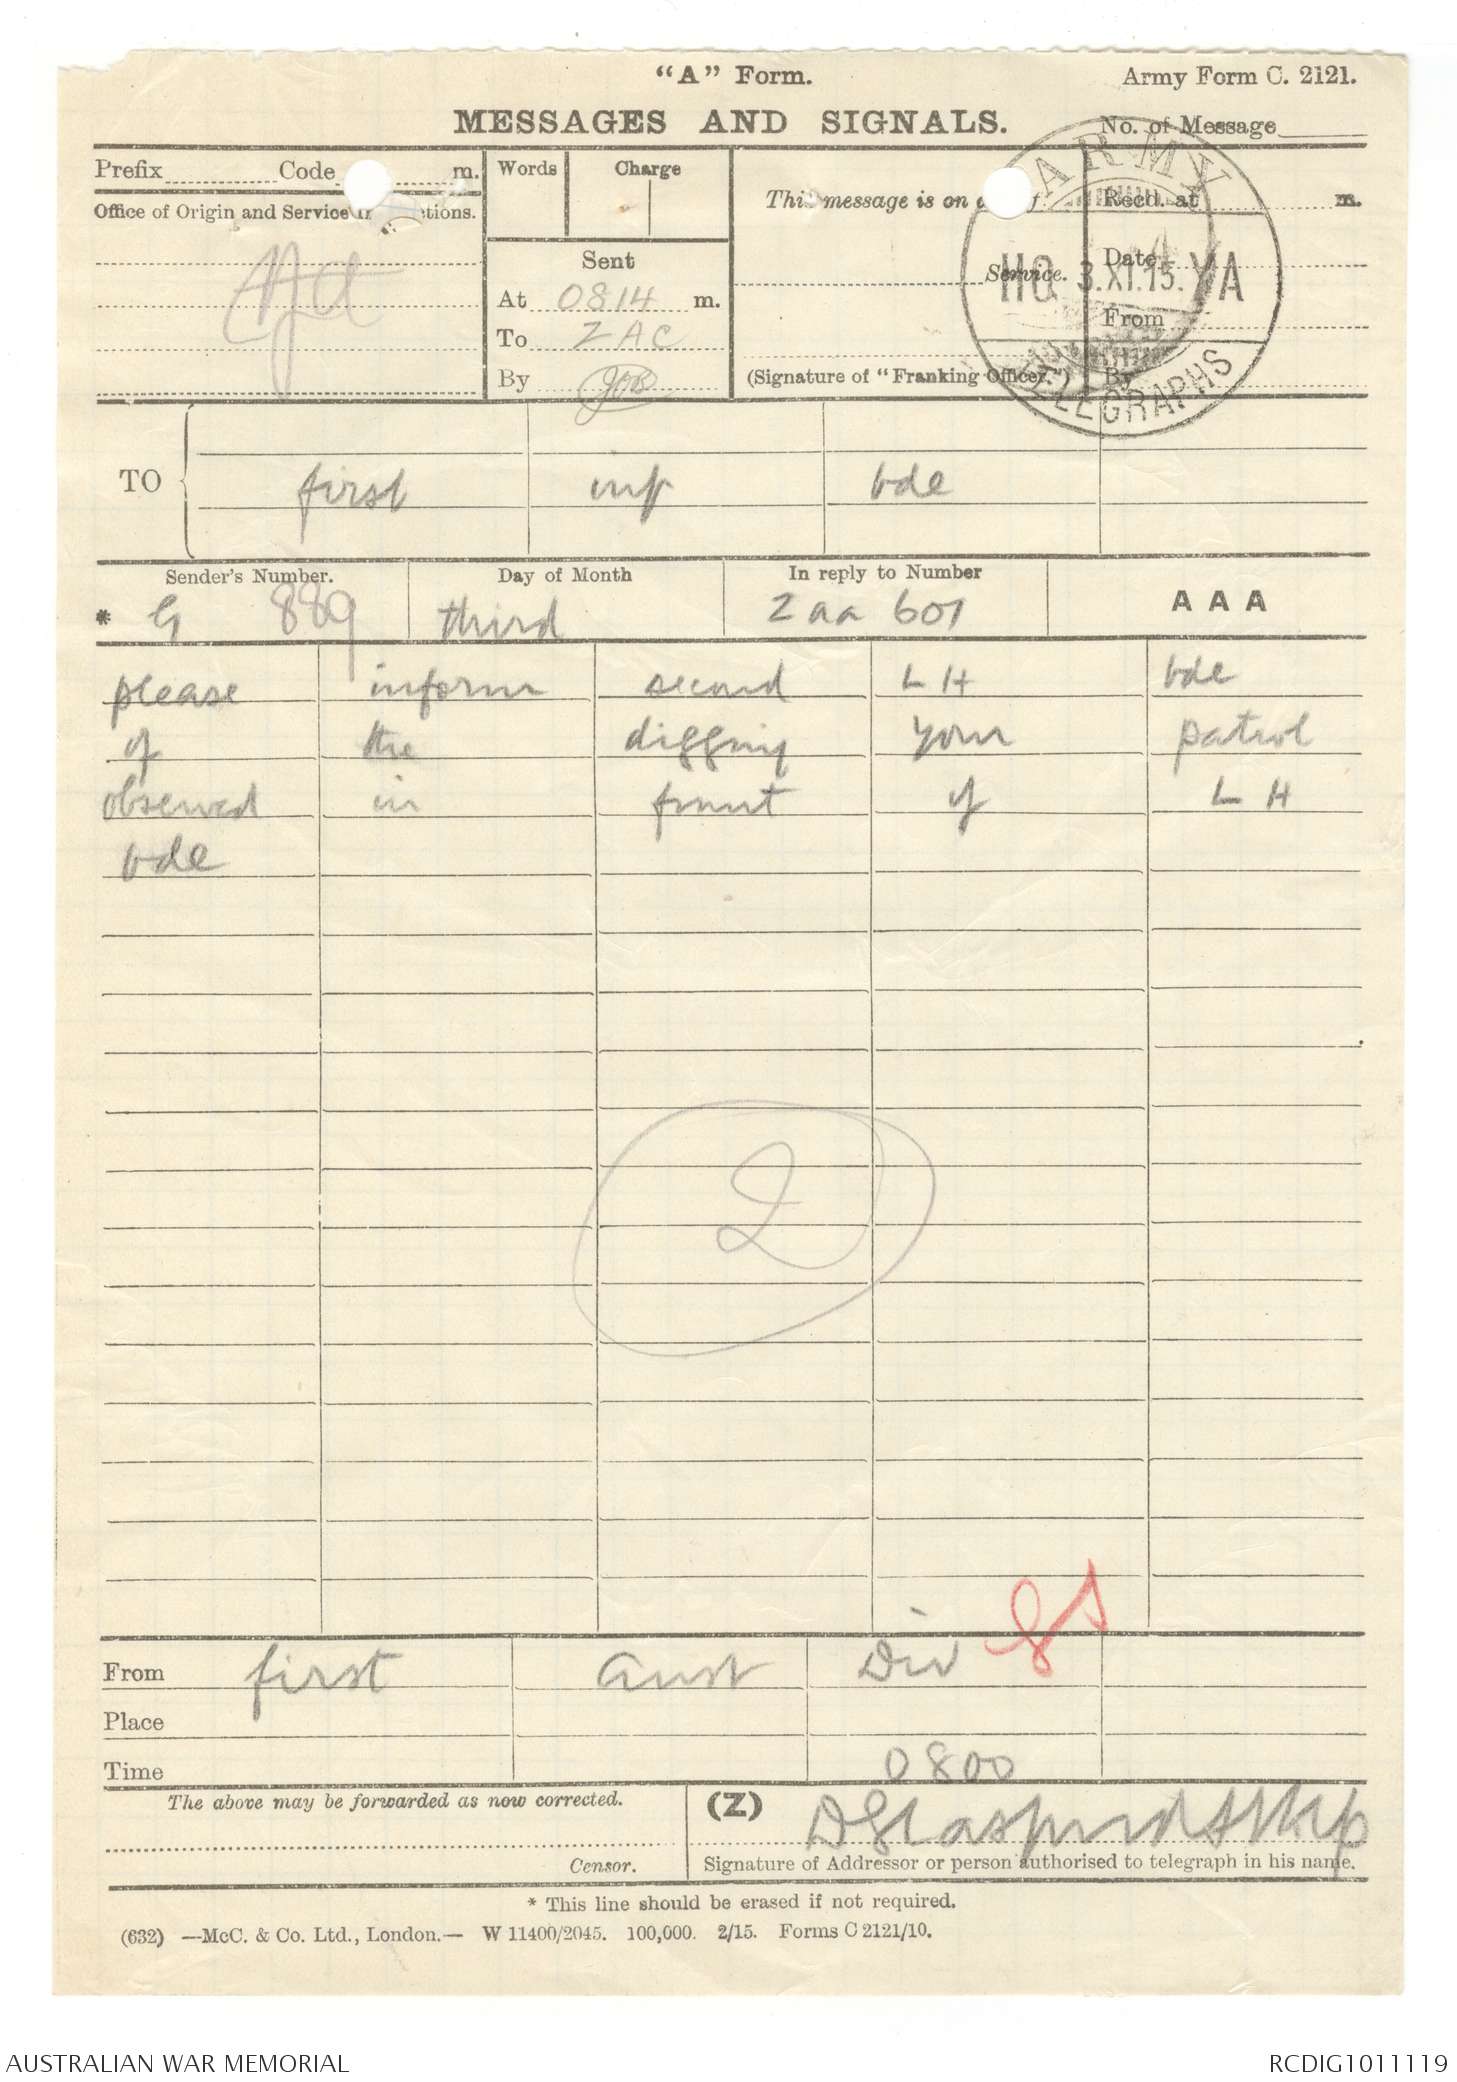 "A" Form. Army Form C. 2121.
MESSAGES AND SIGNALS. No. of Message
Prefix Code m. Words Charge
Office of Origin and Service
This message is on Recd. at m.
Sent
Service. Date
At 0814 m.
From
To ZAC
By
(Signature of "Franking Officer.") By
ARMY
HQ 3.XI.15. YA
TELEGRAPHS
TO first inf bde
Sender's Number. Day of Month In reply to Number
* G 889 third 2aa 601 AAA
please inform second LH bde
of the digging your patrol
observed in front of LH
bde
2
GS
From first Aust Div
Place
Time 0800
The above may be forwarded as now corrected. (Z)
Censor. Signature of Addressor or person authorised to telegraph in his name.
* This line should be erased if not required.
(632) —McC. & Co. Ltd., London.— W 11400/2045. 100,000. 2/15. Forms C 2121/10.
AUSTRALIAN WAR MEMORIAL RCDIG1011119